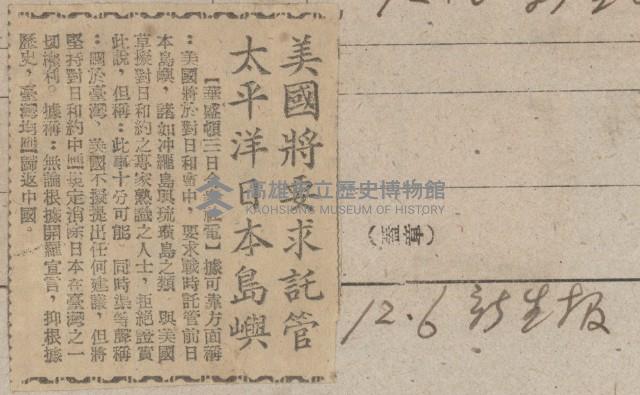 美國將要求託管
太平洋日本島嶼
【華盛頓三日
電】據可靠方面稱
：美國將於對日和會中，要求戰時託管前日
本島嶼，諸如冲繩島與琉璜島之類，與美國
草擬對日和約之專家熟識之人士，拒絕證實
此說，但稱：此事十分可能，同時渠等聲稱
：關於臺灣，美國不擬提出任何建議，但將
堅持對日和約中應規定消除日本在臺灣之一
切權利。據稱：無論根據開羅宣言，抑根據
歷史，臺灣均應歸返中國。
高雄市立歷史博物館
KAOHSIUNG MUSEUM OF HISTORY
（蓋章）
12.6 新生報